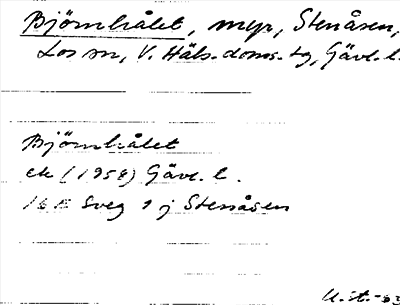 Björnhålet, myr, Stenåsen,
Los sn, V. Häls. doms. tg, Gävl. l.
Björnhålet
ek (1958) Gävl. l.
16 E Sveg 9 j Stenåsen
U. St. -83